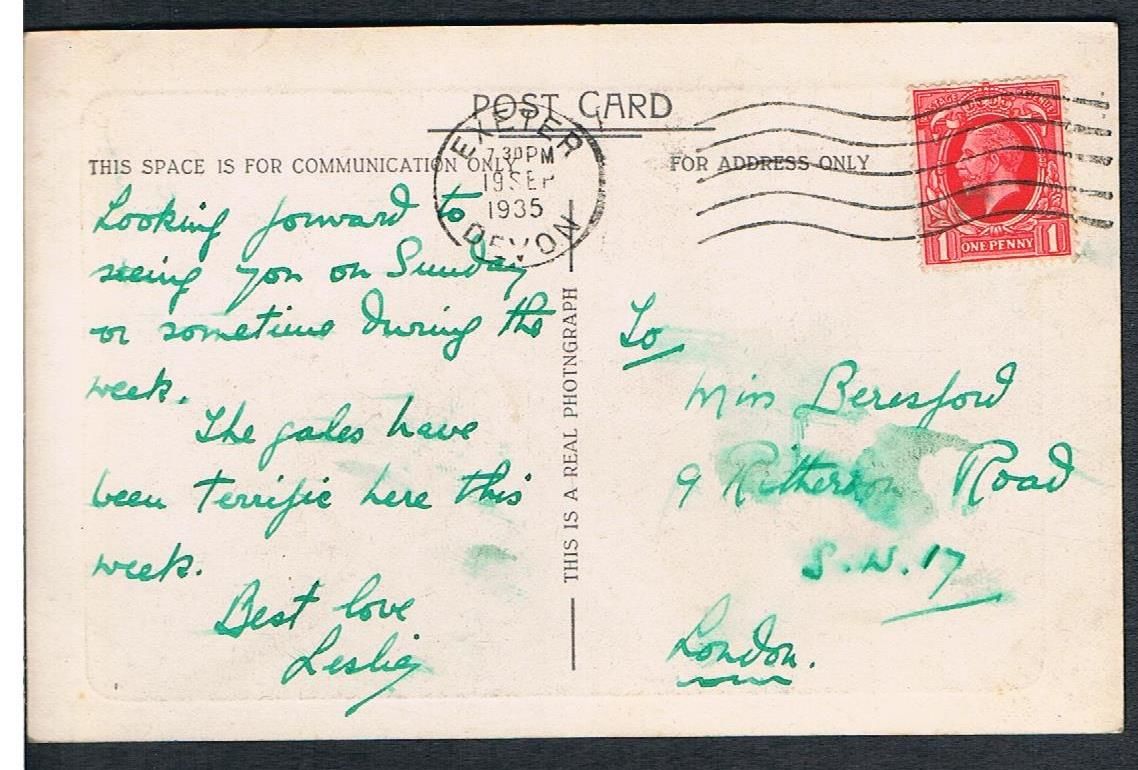 POST CARD
EXETER
7.30 PM
19 SEP
1935
DEVON
THIS SPACE IS FOR COMMUNICATION ONLY
FOR ADDRESS ONLY
POSTAGE REVENUE
1 ONE PENNY 1
Looking forward to
seeing you on Sunday
or sometime during the
week.
The gales have
been terrific here this
week.
Best love
Leslie
THIS IS A REAL PHOTNGRAPH
To
Miss Beresford
9 Ritherdon Road
S.W. 17
London.